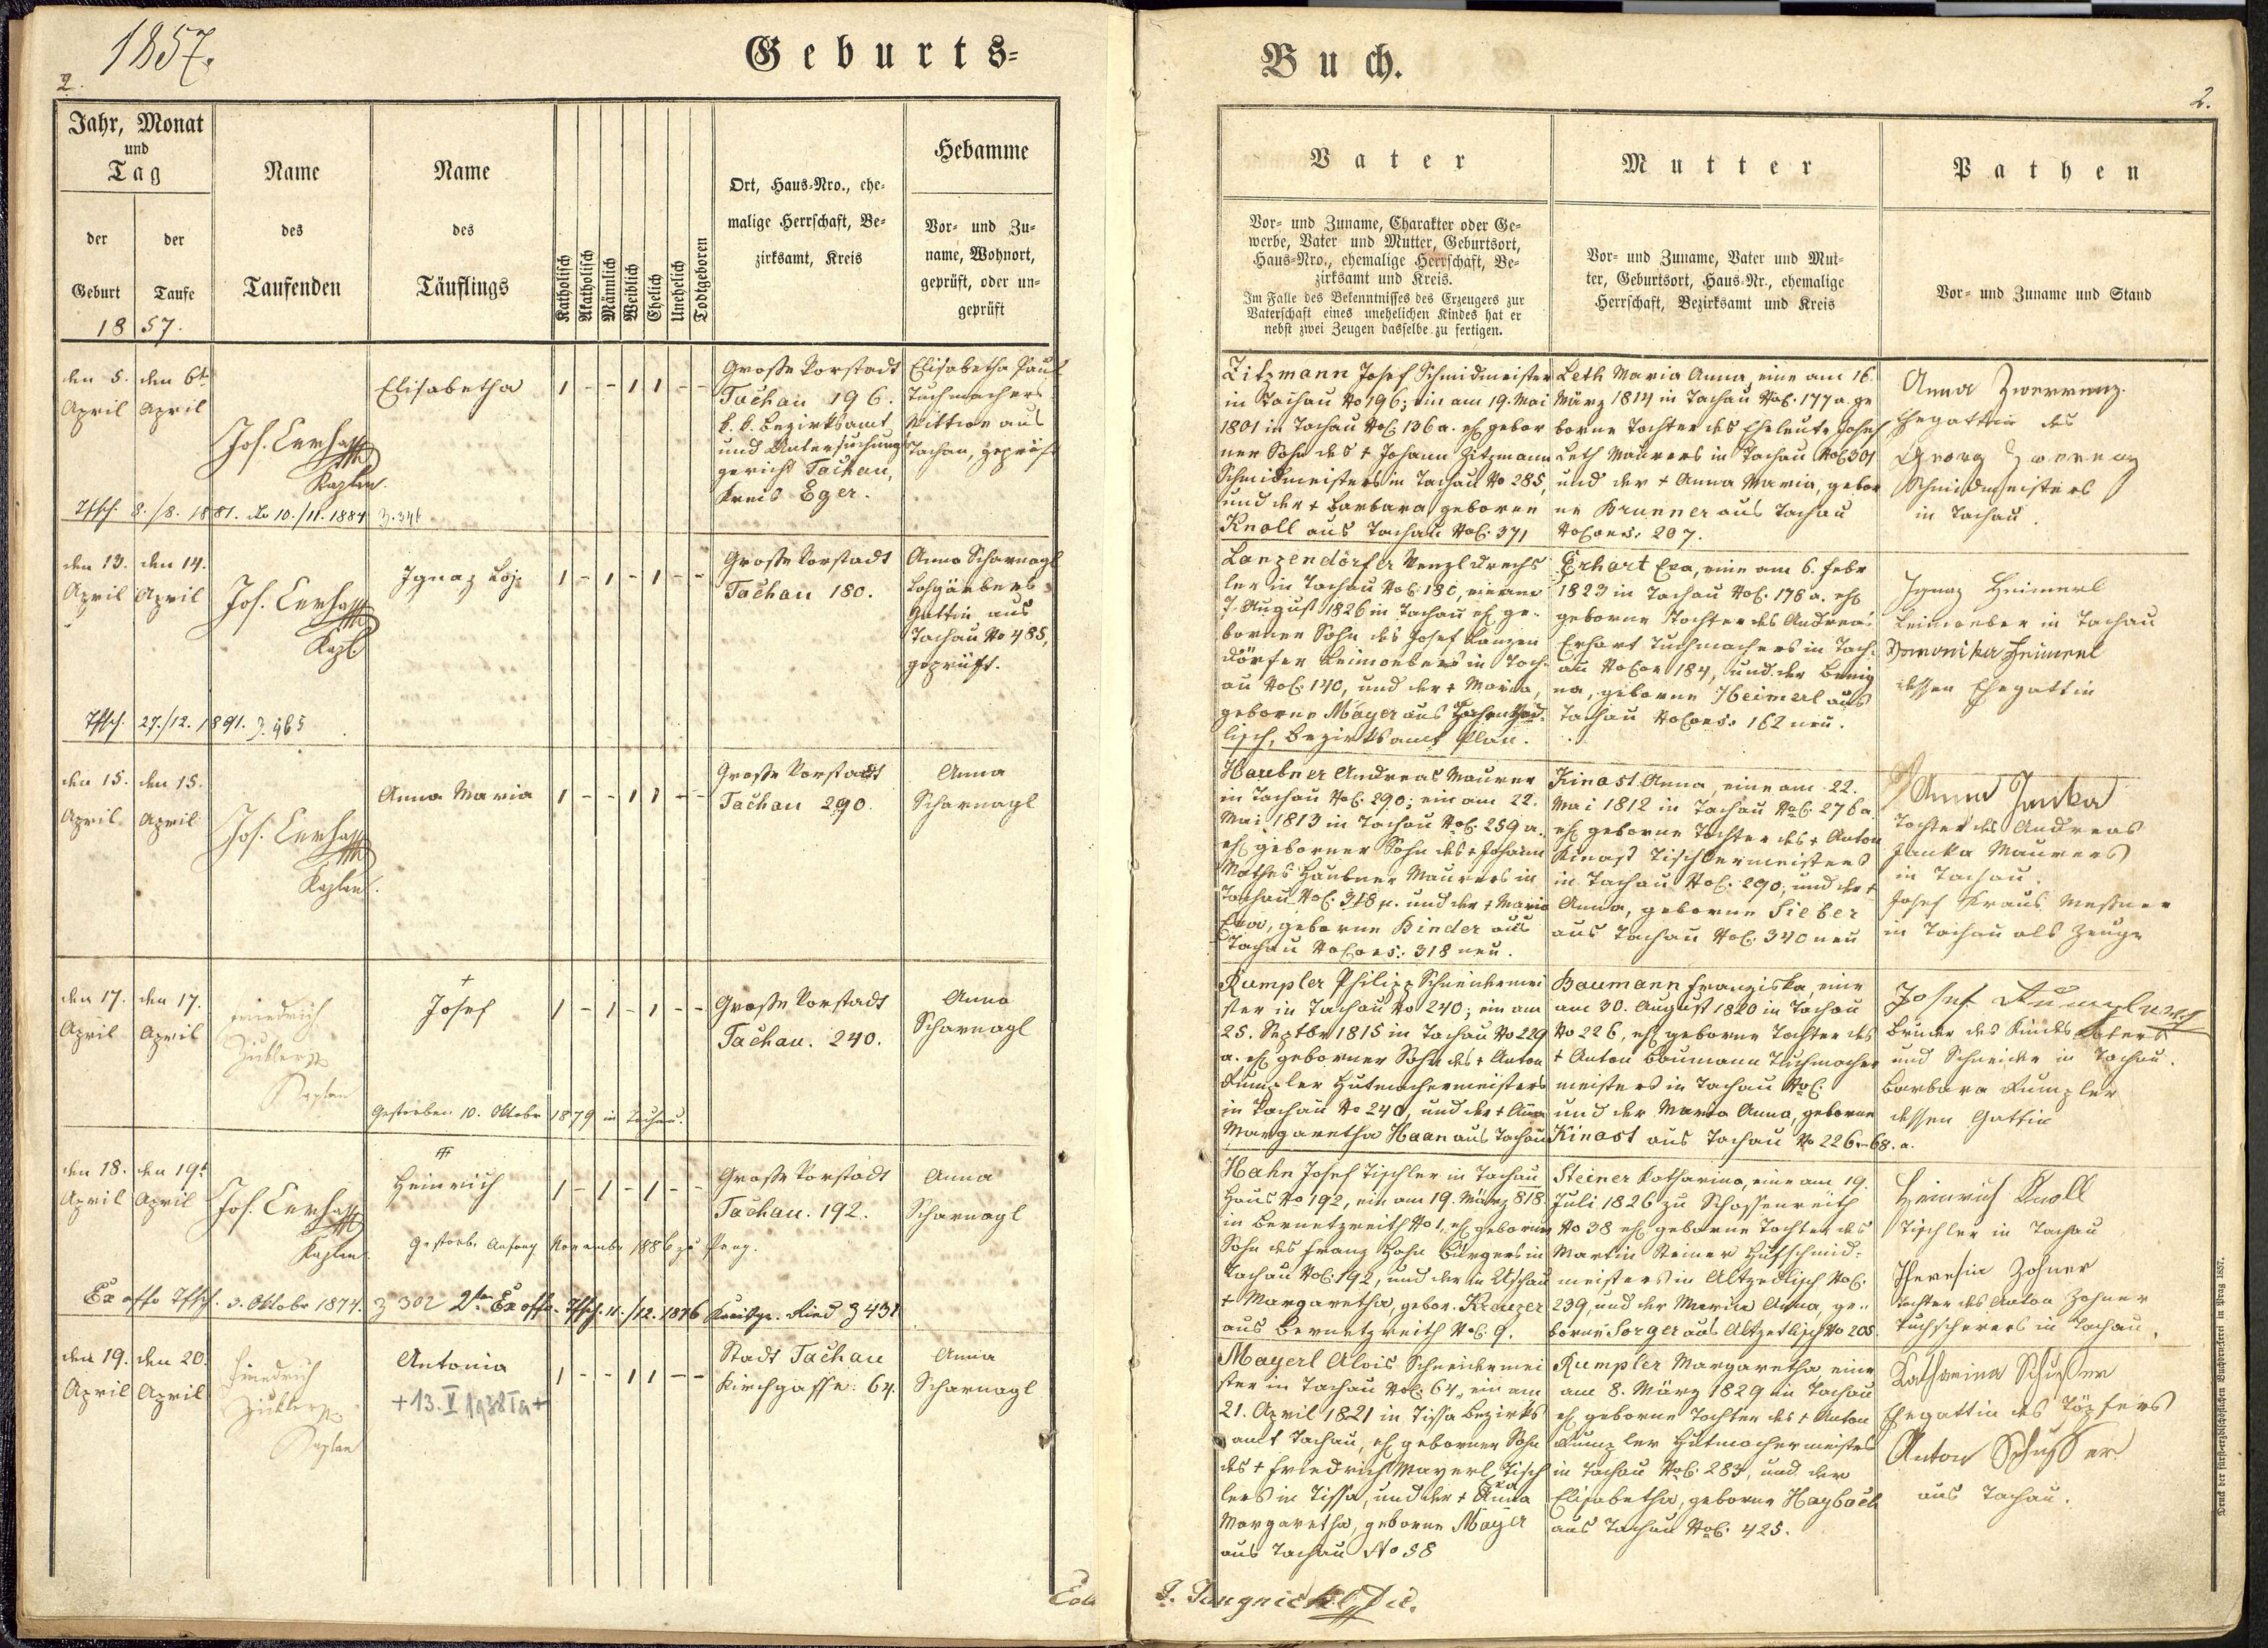 1857.
Geburts=
2.
Jahr, Monat
und
Tag
der
Geburt
der
Taufe
18 57.
Name
des
Taufenden
Name
des
Täuflings
Katholisch
Akatholisch
Männlich
Weiblich
Ehelich
Unehelich
Todtgeboren
Ort, Haus=Nro., ehe=
malige Herrschaft, Be=
zirksamt, Kreis
Hebamme
Vor= und Zu=
name, Wohnort,
geprüft, oder un=
geprüft
den 5.
April
den 6t
April
Jos. Cerha
Kaplan.
Elisabetha
1 - - 1 1 - -
Große Vorstadt
Tachau 196.
k. k. Bezirksamt
und Untersuchungs
gericht Tachau,
Kreis Eger.
Elisabetha Paul
Tuchmachers
Wittwe aus
Tachau, geprüft
8./8. 1881. do 10./11. 1884 Z. 346
den 13.
April
den 14.
April
Jos. Cerha
Kapl.
Ignaz
1 - 1 - 1 - -
Große Vorstadt
Tachau 180.
Anna Scharnagl
Lohgärbers
Gattin aus
Tachau No 485,
geprüft.
27./12. 1891. Z. 465
den 15.
April
den 15.
April
Jos. Cerha
Kaplan.
Anna Maria
1 - - 1 1 - -
Große Vorstadt
Tachau 290.
Anna
Scharnagl
den 17.
April
den 17.
April
Friedrich
Kaplan
+
Josef
1 - 1 - 1 - -
Große Vorstadt
Tachau. 240.
Anna
Scharnagl
Gestorben 10. Oktober 1879 in Tachau.
den 18.
April
den 19t
April
Jos. Cerha
Kaplan
Heinrich
1 - 1 - 1 - -
Große Vorstadt
Tachau. 192.
Anna
Scharnagl
Gestorben Anfang November 1886 zu Prag.
Ex offo 3. Oktober 1874. Z 302 2ter Ex offo 11./12. 1876 Ried Z 431
den 19.
April
den 20.
April
Friedrich
Kaplan
Antonia
+13. V 1938 Ta+
1 - - 1 1 - -
Stadt Tachau
Kirchgasse. 64.
Anna
Scharnagl
Buch.
2.
Vater
Vor= und Zuname, Charakter oder Ge=
werbe, Vater und Mutter, Geburtsort,
Haus=Nro., ehemalige Herrschaft, Be=
zirksamt und Kreis.
Im Falle des Bekenntnisses des Erzeugers zur
Vaterschaft eines unehelichen Kindes hat er
nebst zwei Zeugen dasselbe zu fertigen.
Mutter
Vor= und Zuname, Vater und Mut=
ter, Geburtsort, Haus=Nr., ehemalige
Herrschaft, Bezirksamt und Kreis
Pathen
Vor= und Zuname und Stand
Zitzmann Josef Schmidmeister
in Tachau No 196; ein am 19. Mai
1801 in Tachau NoC. 136 a. ehl. gebor
ner Sohn des + Johann Zitzmann
Schmidmeisters in Tachau No 285,
und der + Barbara geborne
Knoll aus Tachau NoC. 371
Leth Maria Anna, eine am 16.
März 1814 in Tachau NoC. 177 a. ge
borne Tochter des Eheleute Josef
Leth Maurers in Tachau NoC 301
und der + Anna Maria, gebor
ne Brunner aus Tachau
NoCons. 207.
Anna Zwerenz.
Ehegattin des
Georg Zwerenz
Schmidmeisters
in Tachau.
Lanzendörfer Wenzl Drechs
ler in Tachau NoC. 180, ein am
7. August 1826 in Tachau ehl. ge=
borner Sohn des Josef Lanzen
dörfer Leinwebers in Tach=
au NoC. 140, und der + Maria,
geborne Mayer aus
lisch, Bezirksamt Plan.
Erhart Eva, eine am 6. Febr
1823 in Tachau NoC. 178 a. ehl
geborne Tochter des Andreas
Erhart Tuchmachers in Tach=
au NoCon 184, und der Benig
na, geborne Heimerl aus
Tachau NoCons. 162 neu.
Ignaz Heimerl
Leinweber in Tachau
Veronika Heimerl
dessen Ehegattin
Haubner Andreas Maurer
in Tachau NoC. 290; ein am 22.
Mai 1813 in Tachau NoC. 259 a.
ehl geborner Sohn des + Johann
Mathes Haubner Maurers in
Tachau NoC. 318 n. und der + Maria
Eva, geborne Binder aus
Tachau NoCons. 318 neu.
Kinast Anna, eine am 22.
Mai 1812 in Tachau NoC. 276 a
ehl geborne Tochter des + Anton
Kinast Tischlermeisters
in Tachau NoC. 290, und der +
Anna, geborne Sieber
aus Tachau NoC. 340 neu
Anna Janka
Tochter des Andreas
Janka Maurers
in Tachau.
Josef Kraus Meßner
in Tachau als Zeuge
Rumpler Philipp Schneidermei
ster in Tachau No 240; ein am
25. Septbr 1815 in Tachau No 229
a. ehl geborner Sohn des + Anton
Rumpler Hutmachermeisters
in Tachau No 240, und der + Anna
Margaretha Haan aus Tachau
Baumann Franziska, eine
am 30. August 1820 in Tachau
No 226, ehl geborne Tochter des
+ Anton Baumann Tuchmacher
meisters in Tachau NoC.
und der Maria Anna, geborne
Kinast aus Tachau No 226 - 68. a.
Josef Rumpler
Bruder des Kindes Vaters
und Schneider in Tachau.
Barbara Rumpler
dessen Gattin
Hahn Josef Tischler in Tachau
Haus No 192, ein am 19. März 818
in Bernetzreith No 1, ehl geborner
Sohn des Franz Hahn Bürgers in
Tachau NoC. 192, und der in Tachau
+ Margaretha, gebor. Kreuzer
aus Bernetzreith NoC. 9.
Steiner Katharina, eine am 19.
Juli 1826 zu Schossenreith
No 38 ehl geborne Tochter des
Martin Steiner Hufschmid=
meisters in Altzedlisch NoC.
239, und der Maria Anna, ge=
borne Sorger aus Altzedlisch No 205
Heinrich Knoll
Tischler in Tachau
Theresia Zohner
Tochter des Anton Zohner
Tuchscherers in Tachau.
Mayerl Alois Schneidermei
ster in Tachau NoC. 64, ein am
21. April 1821 in Tissa Bezirks
amt Tachau, ehl geborner Sohn
des + Friedrich Mayerl, Tisch
lers in Tissa, und der + Anna
Margaretha, geborne Mayer
aus Tachau No 58
Rumpler Margaretha eine
am 8. März 1829 in Tachau
ehl geborne Tochter des + Anton
Rumpler Hutmachermeisters
in Tachau NoC. 283, und der
Elisabetha, geborne Hayböck
aus Tachau NoC. 425.
Katharina Schusser
Ehegattin des Töpfers
Anton Schusser
aus Tachau.
Druck der fürsterzbischöflichen Buchdruckerei in Prag 1857.